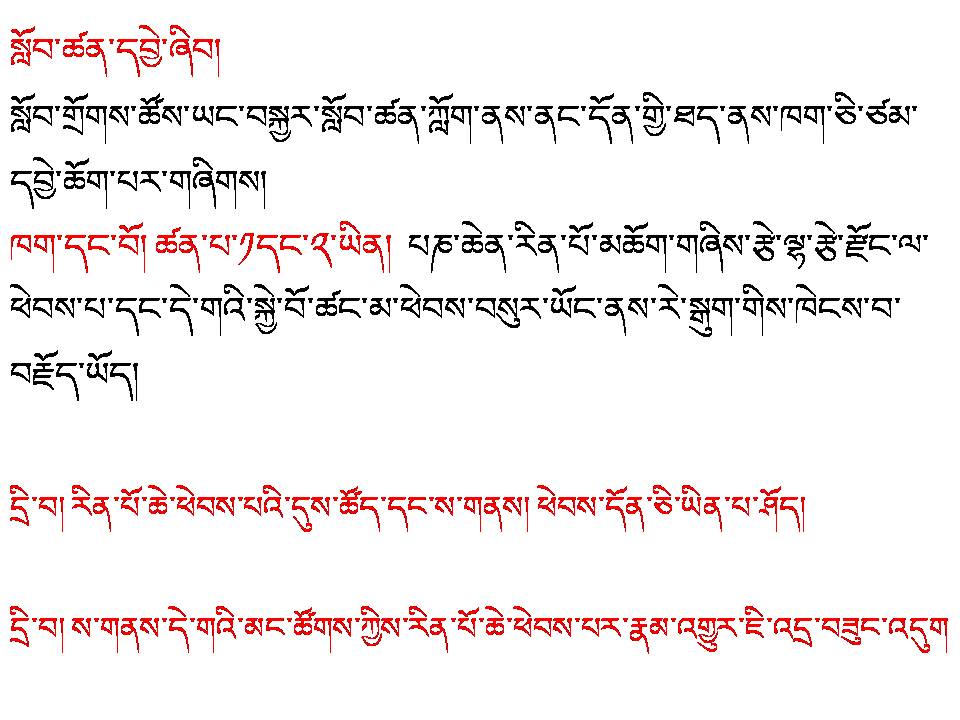 སློབ་ཚན་དབྱེ་ཞིབ།
སློབ་གྲོགས་ཚོས་ཡང་བསྐྱར་སློབ་ཚན་ཀློག་ནས་ནང་དོན་གྱི་ཐད་ནས་ཁག་ཅི་ཙམ་
དབྱེ་ཆོག་པར་གཞིགས།
ཁག་དང་བོ། ཚན་པ་༡དང་༢་ཡིན། པཎ་ཆེན་རིན་པོ་མཆོག་གཞིས་རྩེ་ལྷ་རྩེ་རྫོང་ལ་
ཕེབས་པ་དང་དེ་གའི་སྐྱེ་བོ་ཚང་མ་ཕེབས་བསུར་ཡོང་ནས་རེ་སྒུག་གིས་ཁེངས་བ་
བརྗོད་ཡོད།
དྲི་བ། རིན་པོ་ཆེ་ཕེབས་པའི་དུས་ཚོད་དང་ས་གནས། ཕེབས་དོན་ཅི་ཡིན་པ་ཤོད།
དྲི་བ། ས་གནས་དེ་གའི་མང་ཚོགས་ཀྱིས་རིན་པོ་ཆེ་ཕེབས་པར་རྣམ་འགྱུར་ཇི་འདྲ་བཟུང་འདུག